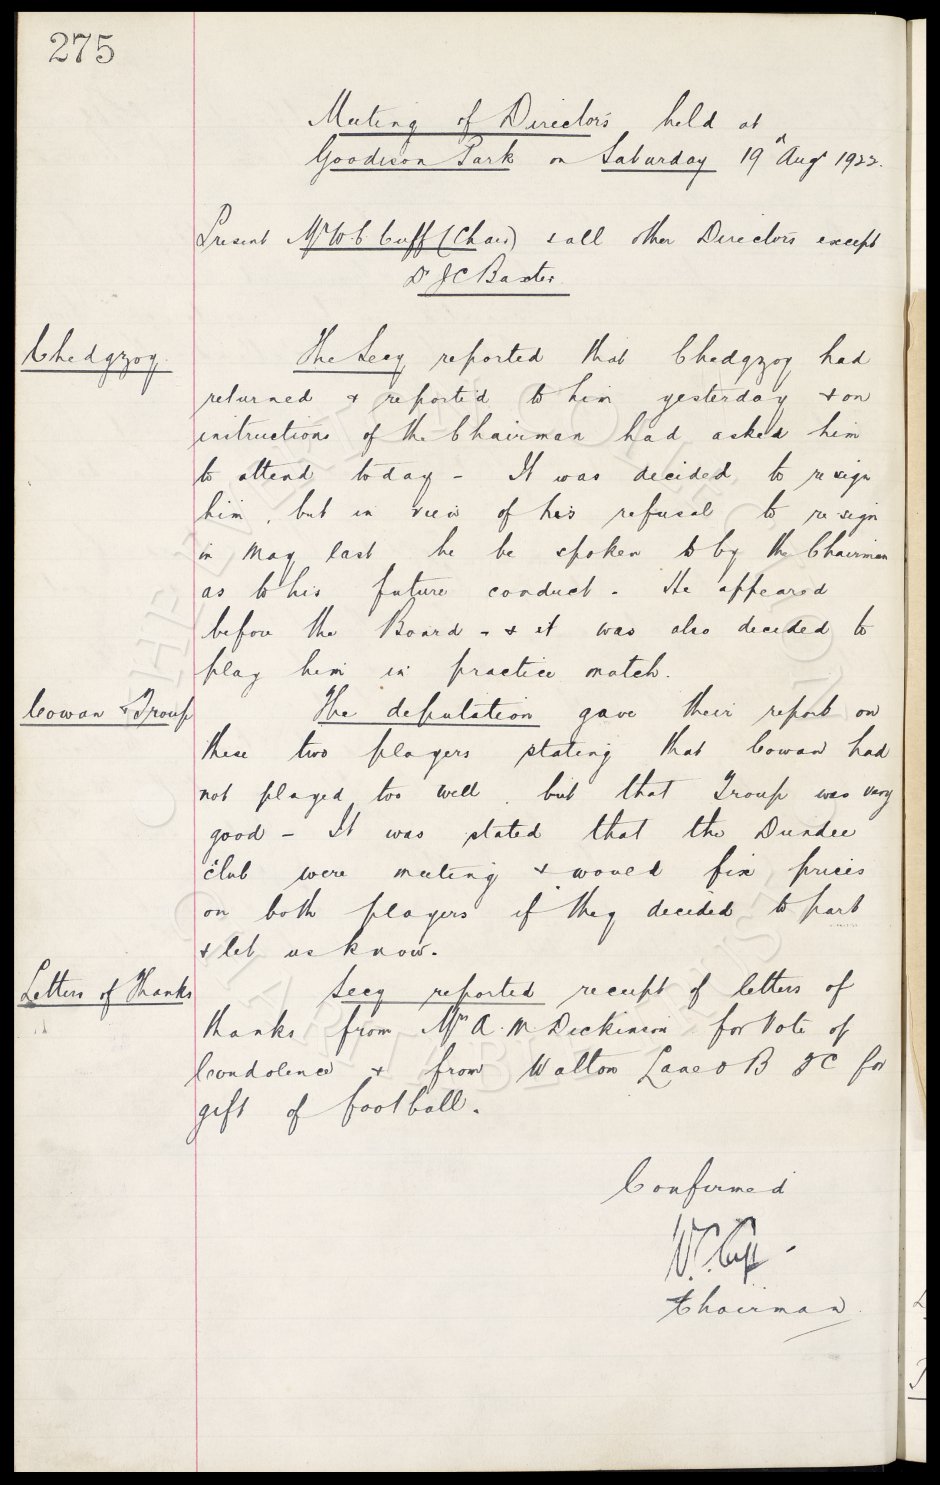 275
Meeting of Directors held at
Goodison Park on Saturday 19th Augt 1922.
Present Mr W.C. Cuff (Chair) & all other Directors except
Dr J C Baxter.
Chedgzoy.
The Secy reported that Chedgzoy had
returned & reported to him yesterday & on
instructions of the Chairman had asked him
to attend today - It was decided to resign
him, but in view of his refusal to re-sign
in May last he be spoken to by the Chairman
as to his future conduct - He appeared
before the Board - & it was also decided to
play him in practice match.
Cowan & Troup
The deputation gave their report on
these two players stating that Cowan had
not played too well, but that Troup was very
good - It was stated that the Dundee
club were meeting & would fix prices
on both players if they decided to part
& let us know.
Letters of Thanks
Secy reported receipt of letters of
thanks from Mr A. M Dickinson for Vote of
Condolence & from Walton Lane O B F C for
gift of football.
Confirmed
W.C. Cuff -
Chairman.
THE EVERTON COLLECTION
CHARITABLE TRUST